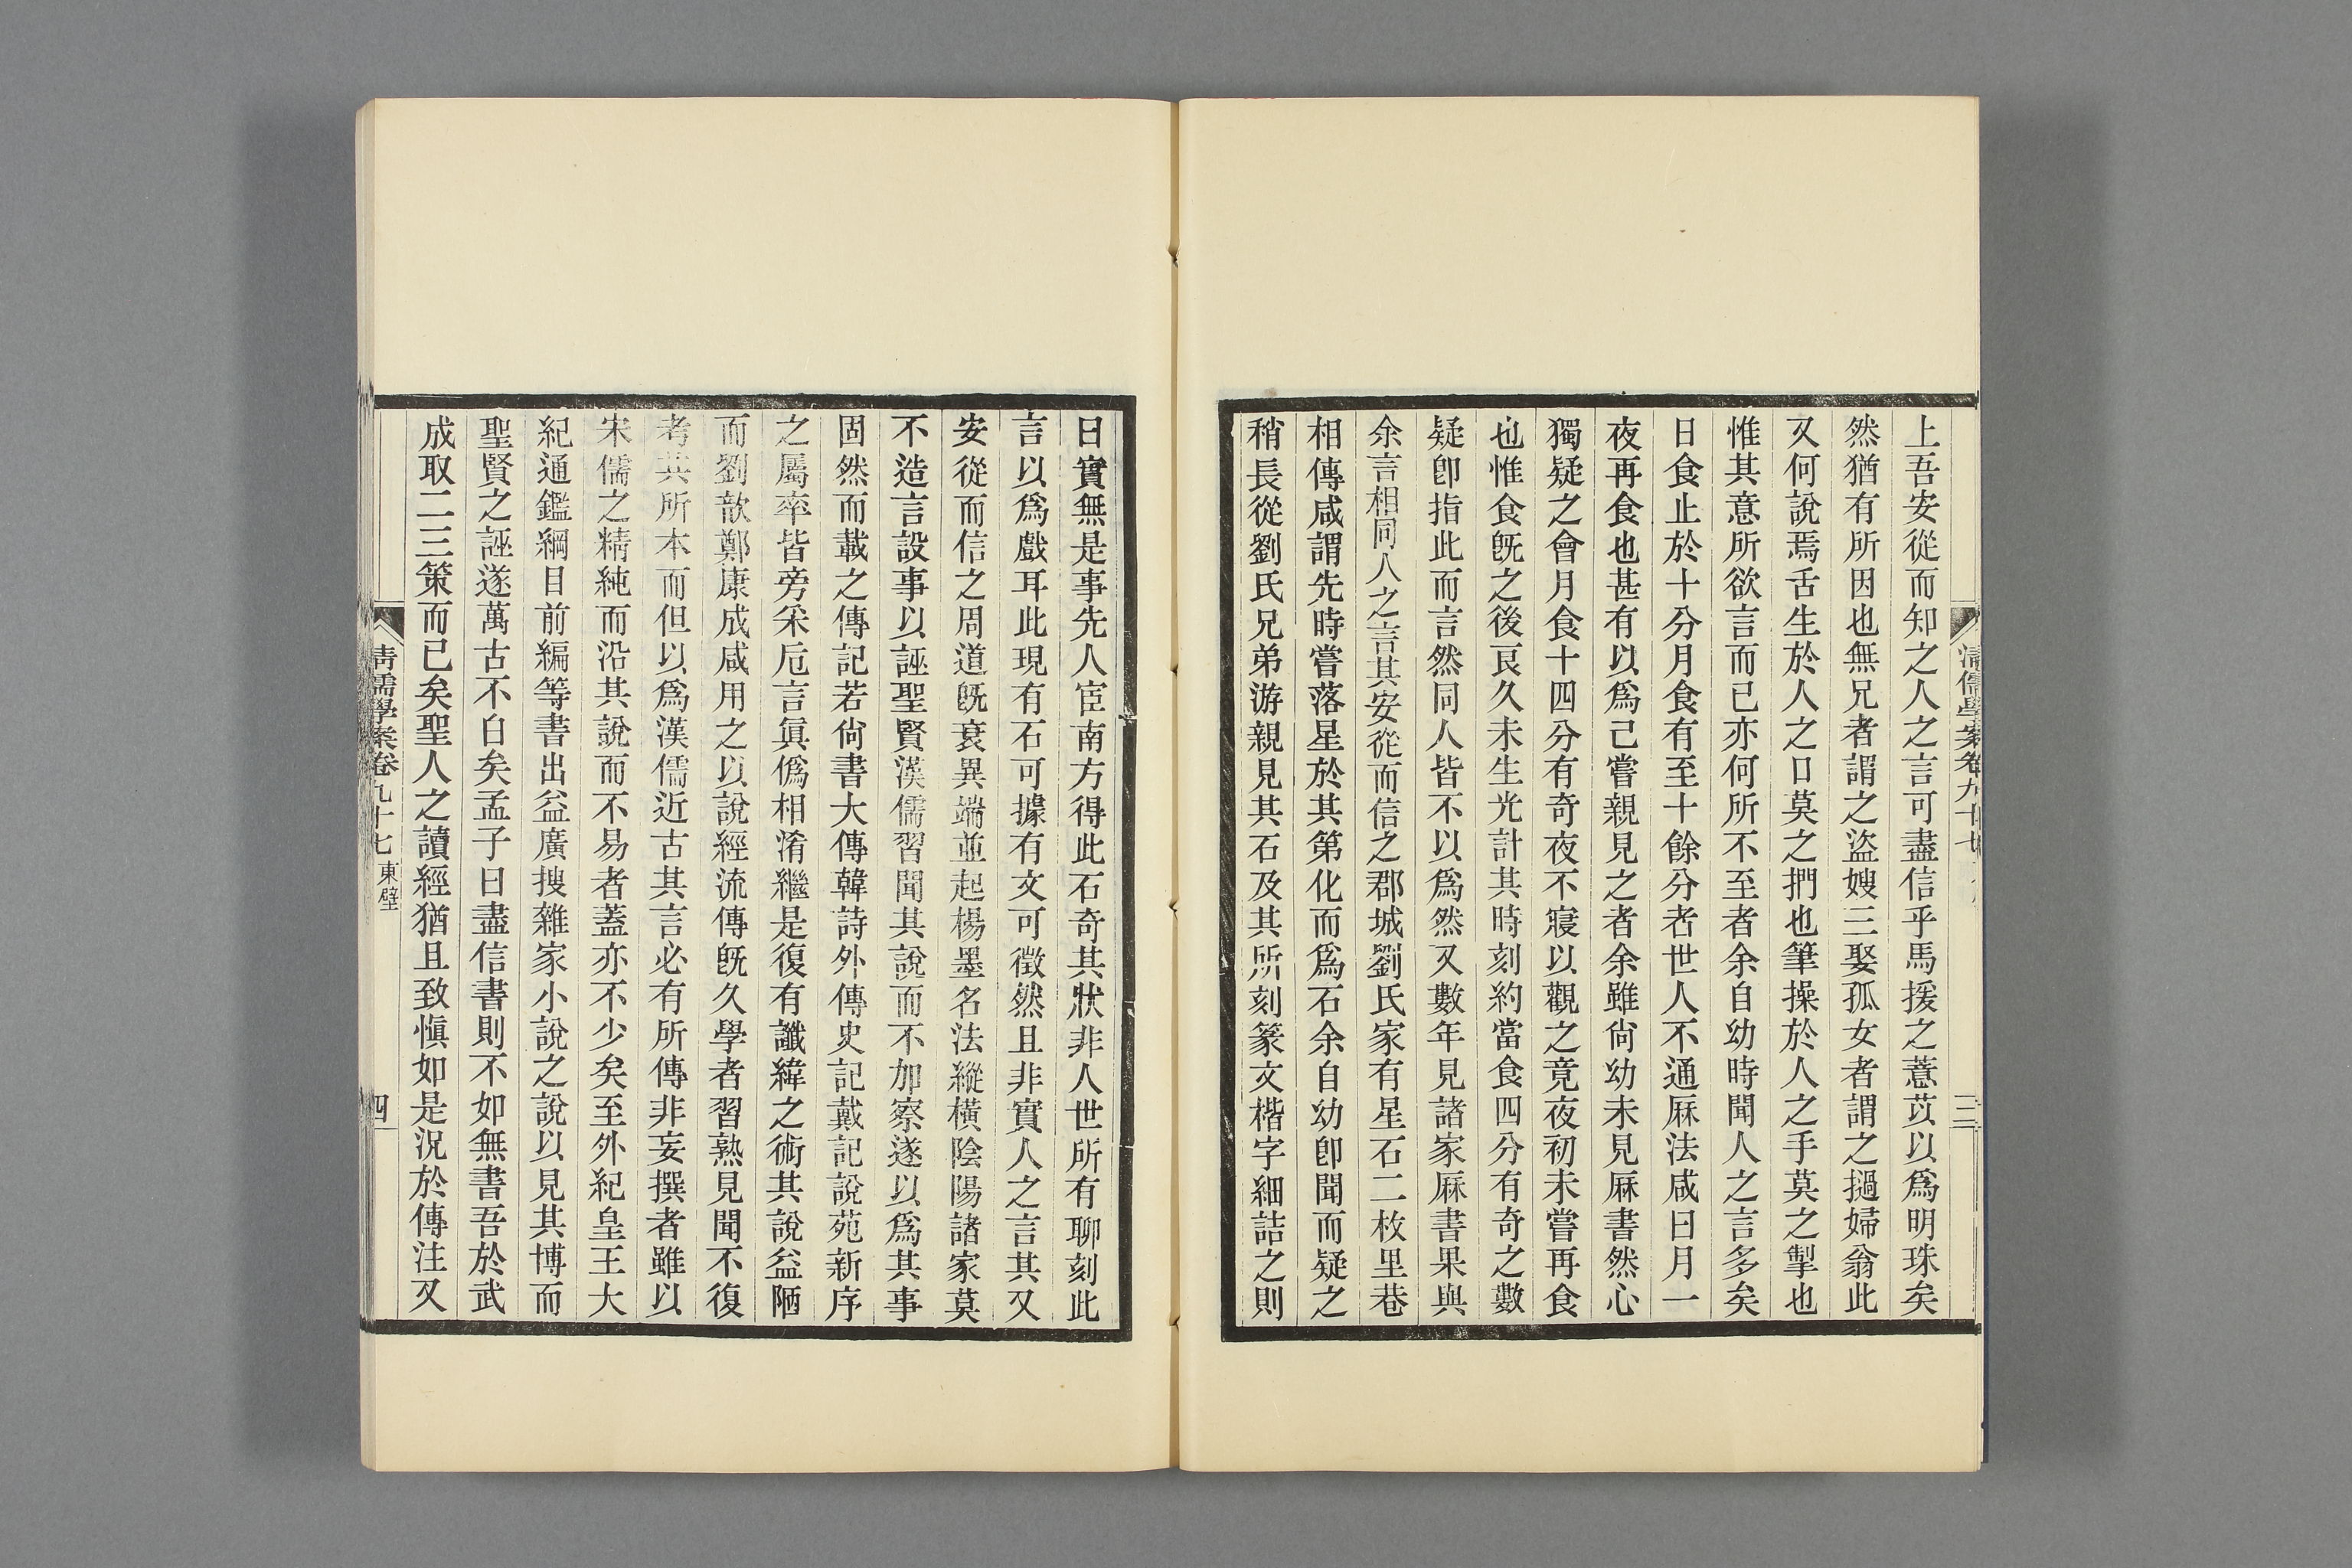 上吾安從而知之人之言可盡信乎馬援之薏苡以爲明珠矣
然猶有所因也無兄者謂之盜嫂三娶孤女者謂之撾婦翁此
又何說焉舌生於人之口莫之捫也筆操於人之手莫之掣也
惟其意所欲言而已亦何所不至者余自幼時聞人之言多矣
日食止於十分月食有至十餘分者世人不通厤法咸曰月一
夜再食也甚有以爲己嘗親見之者余雖尙幼未見厤書然心
獨疑之會月食十四分有奇夜不寢以觀之竟夜初未嘗再食
也惟食旣之後良久未生光計其時刻約當食四分有奇之數
疑卽指此而言然同人皆不以爲然又數年見諸家厤書果與
余言相同人之言其安從而信之郡城劉氏家有星石二枚里巷
相傳咸謂先時嘗落星於其第化而爲石余自幼卽聞而疑之
稍長從劉氏兄弟游親見其石及其所刻篆文楷字細詰之則
清儒學案卷九十七
三
曰實無是事先人宦南方得此石奇其狀非人世所有聊刻此
言以爲戲耳此現有石可據有文可徵然且非實人之言其又
安從而信之周道旣衰異端並起楊墨名法縱橫陰陽諸家莫
不造言設事以誣聖賢漢儒習聞其說而不加察遂以爲其事
固然而載之傳記若尙書大傳韓詩外傳史記戴記說苑新序
之屬率皆旁采卮言眞僞相淆繼是復有讖緯之術其說益陋
而劉歆鄭康成咸用之以說經流傳旣久學者習熟見聞不復
考其所本而但以爲漢儒近古其言必有所傳非妄撰者雖以
宋儒之精純而沿其說而不易者蓋亦不少矣至外紀皇王大
紀通鑑綱目前編等書出益廣搜雜家小說之說以見其博而
聖賢之誣遂萬古不白矣孟子曰盡信書則不如無書吾於武
成取二三策而已矣聖人之讀經猶且致愼如是況於傳注又
清儒學案卷九十七 東壁
四